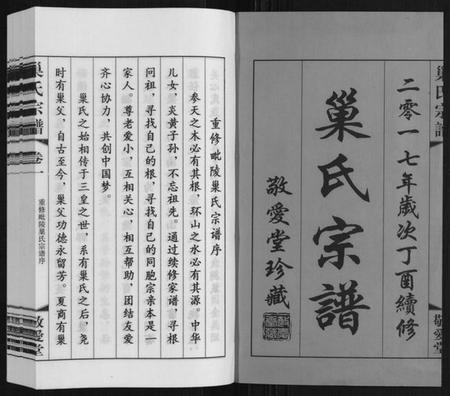 二零一七年歲次丁酉續修
巢氏宗譜
敬愛堂珍藏
巢氏宗譜
敬愛堂
重修毗陵巢氏宗谱序
参天之木必有其根，环山之水必有其源。中华
儿女，炎黄子孙，不忘祖先。通过续修家谱，寻根
问祖，寻找自己的根，寻找自己的同胞宗亲本是一
家人。尊老爱小，互相关心，相互帮助，团结友爱
齐心协力，共创中国梦。
巢氏之始相传于三皇之世，系有巢氏之后，尧
时有巢父，自古至今，巢父功德永留芳。夏商有巢
巢氏宗譜
卷一
重修毗陵巢氏宗谱序
敬愛堂